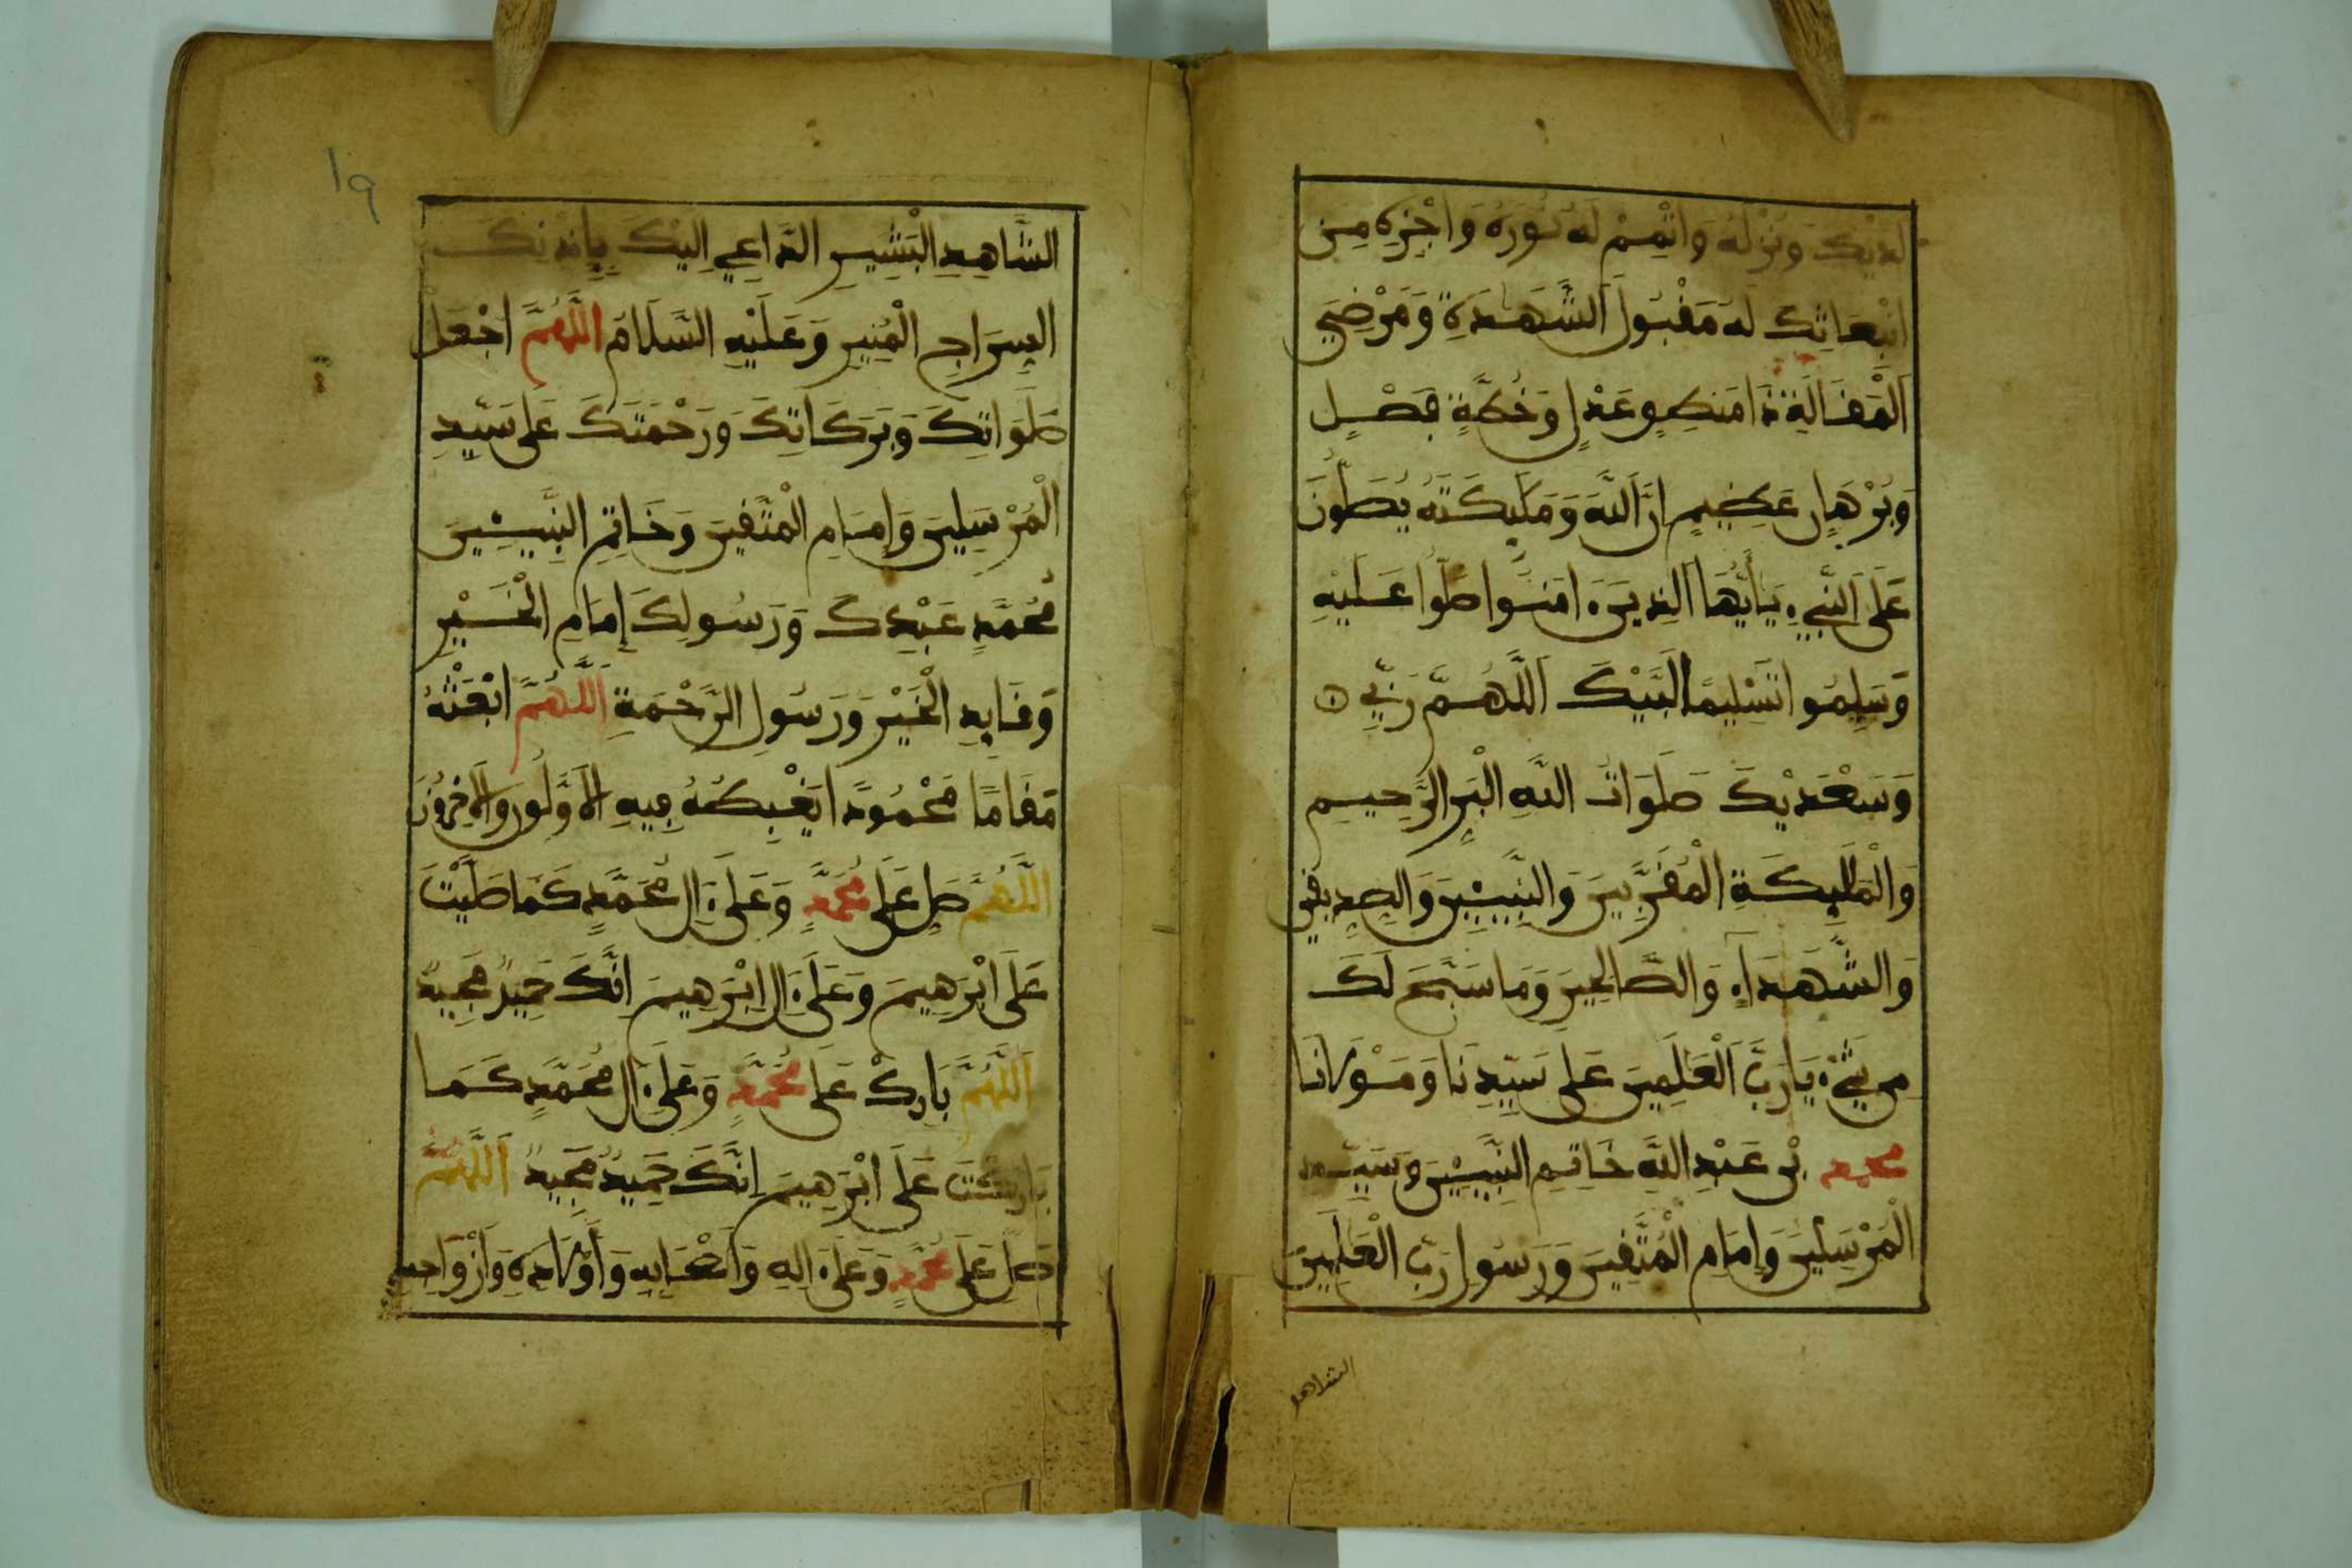 لديك ونزله واتمم له نوره واجزه من
ابتعاثك له مقبول الشهدة ومرضي
المقالة ذا منطق عدل وخطة فصل
وبرهان عظيم ان الله وملئكته يصلون
على النبيء يأيها الذين ءامنوا صلوا عليه
وسلموا تسليما لبيك اللهم ربي
وسعديك صلوات الله البر الرحيم
والملئكة المقربين والنبيئين والصديقين
والشهداء والصالحين وما سبح لك
من شيء يا رب العلمين على سيدنا ومولانا
محمد بن عبد الله خاتم النبيئين وسيد
المرسلين وإمام المتقين ورسول رب العلمين
الشاهد
١٩
الشاهد البشير الداعي اليك بإذنك
السراج المنير وعليه السلام اللهم اجعل
صلواتك وبركاتك ورحمتك على سيد
المرسلين وإمام المتقين وخاتم النبيئين
محمد عبدك ورسولك إمام الخير
وقايد الخير ورسول الرحمة اللهم ابعثه
مقاما محمودا يغبطه فيه الاولون والاخرون
اللهم صل على محمد وعلى ءال محمد كما صليت
على ابرهيم وعلى ءال ابرهيم انك حميد مجيد
اللهم بارك على محمد وعلى ءال محمد كما
باركت على ابرهيم انك حميد مجيد اللهم
صل على محمد وعلى ءاله واصحابه واولاده وازواجه